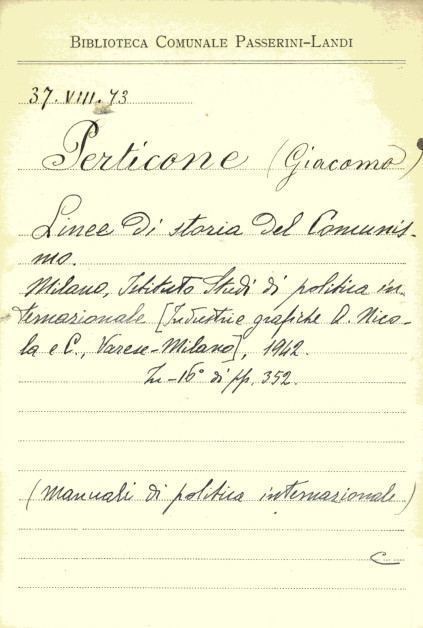 BIBLIOTECA COMUNALE PASSERINI-LANDI
37.VIII.43
Perticone (Giacomo)
Linee di storia del Comunis-
mo.
Milano, Istituto Studi di politica in-
ternazionale [Industrie grafiche A. Nico-
la e C., Varese-Milano], 1942.
In-16° di pp. 352.
(Manuali di politica internazionale)
C